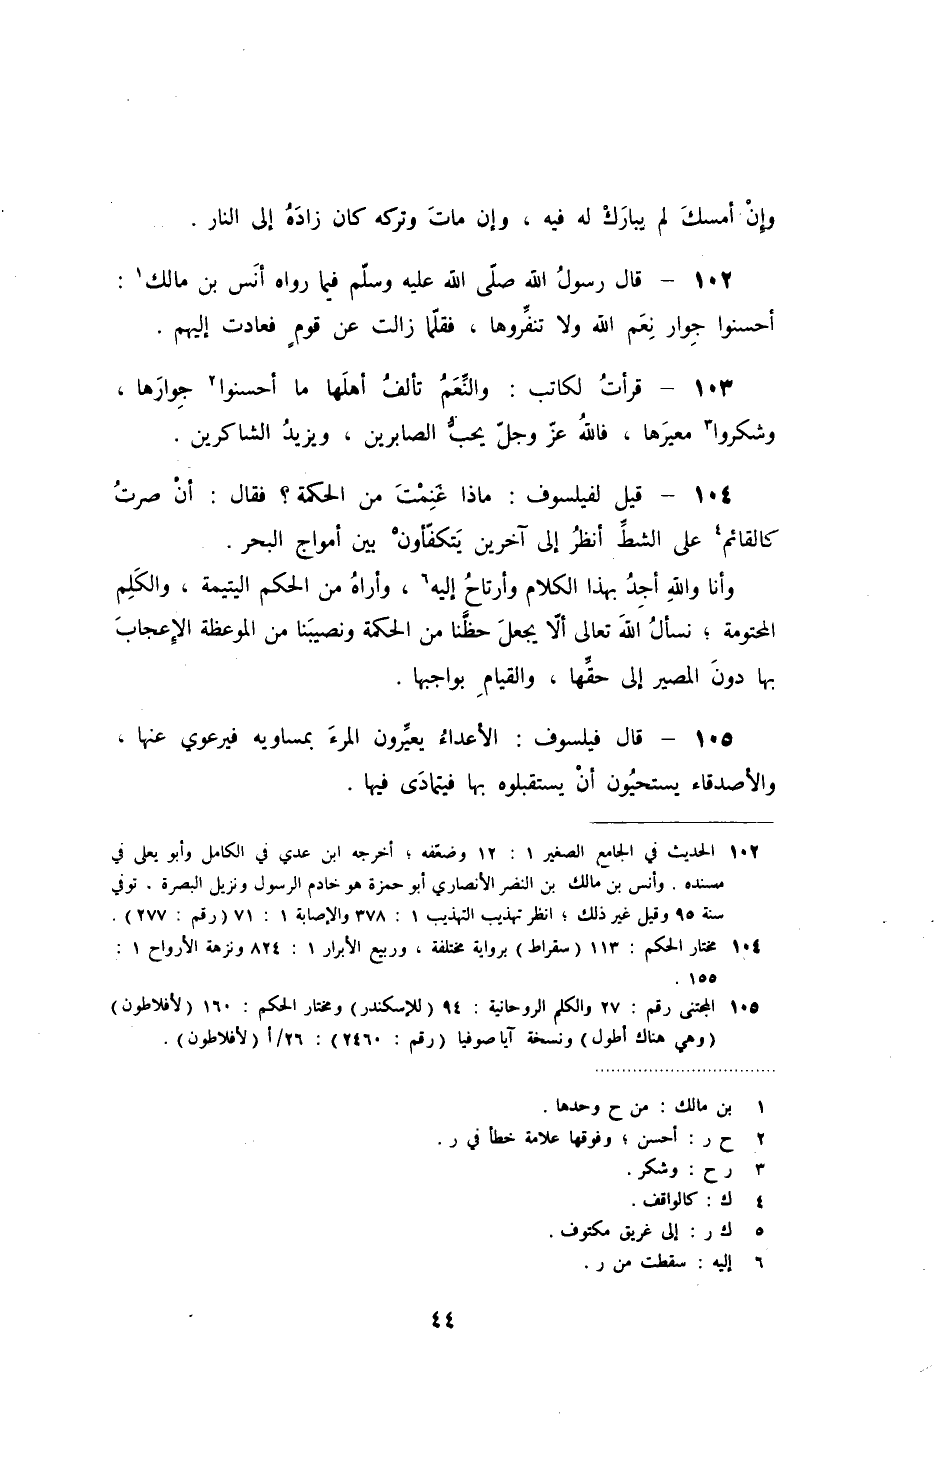 وإنْ أمسكَ لم يبارَكْ له فيه ، وإن ماتَ وتركه كان زادَهُ إلى النار .
١٠٢ – قال رسولُ الله صلّى الله عليه وسلّم فيما رواه أنَس بن مالك١ :
أحسنوا جِوار نِعَم الله ولا تنفِّروها ، فقلّما زالت عن قومٍ فعادت إليهم .
١٠٣ – قرأتُ لكاتب : والنِّعَمُ تألفُ أهلَها ما أحسنوا٢ جِوارَها ،
وشكروا٣ معيرَها ، فاللهُ عزّ وجلّ يحبُّ الصابرين ، ويزيدُ الشاكرين .
١٠٤ – قيل لفيلسوف : ماذا غَنِمْتَ من الحكمة ؟ فقال : أنْ صرتُ
كالقائم٤ على الشطِّ أنظرُ إلى آخرين يَتكفّأون٥ بين أمواج البحر .
وأنا واللهِ أجِدُ بهذا الكلام وأرتاحُ إليه٦ ، وأراهُ من الحكم اليتيمة ، والكَلِم
المختومة ؛ نسألُ اللهَ تعالى ألّا يجعلَ حظَّنا من الحكمة ونصيبَنا من الموعظة الإعجابَ
بها دونَ المصير إلى حقِّها ، والقيامِ بواجبها .
١٠٥ – قال فيلسوف : الأعداءُ يعيِّرون المرءَ بمساويه فيرعوي عنها ،
والأصدقاء يستحيُون أنْ يستقبلوه بها فيتمادَى فيها .
١٠٢ الحديث في الجامع الصغير ١ : ١٢ وضعّفه ؛ أخرجه ابن عدي في الكامل وأبو يعلى في
مسنده . وأنس بن مالك بن النضر الأنصاري أبو حمزة هو خادم الرسول ونزيل البصرة . توفي
سنة ٩٥ وقيل غير ذلك ؛ انظر تهذيب التهذيب ١ : ٣٧٨ والإصابة ١ : ٧١ (رقم : ٢٧٧) .
١٠٤ مختار الحكم : ١١٣ (سقراط) برواية مختلفة ، وربيع الأبرار ١ : ٨٢٤ ونزهة الأرواح ١ :
١٥٥ .
١٠٥ المجتنى رقم : ٢٧ والكلم الروحانية : ٩٤ (للإسكندر) ومختار الحكم : ١٦٠ (لأفلاطون)
(وهي هناك أطول) ونسخة آيا صوفيا (رقم : ٢٤٦٠) : ٢٦/أ (لأفلاطون) .
١ بن مالك : من ح وحدها .
٢ ح ر : أحسن ؛ وفوقها علامة خطأ في ر .
٣ ر ح : وشكر .
٤ ك : كالواقف .
٥ ك ر : إلى غريق مكتوف .
٦ إليه : سقطت من ر .
٤٤